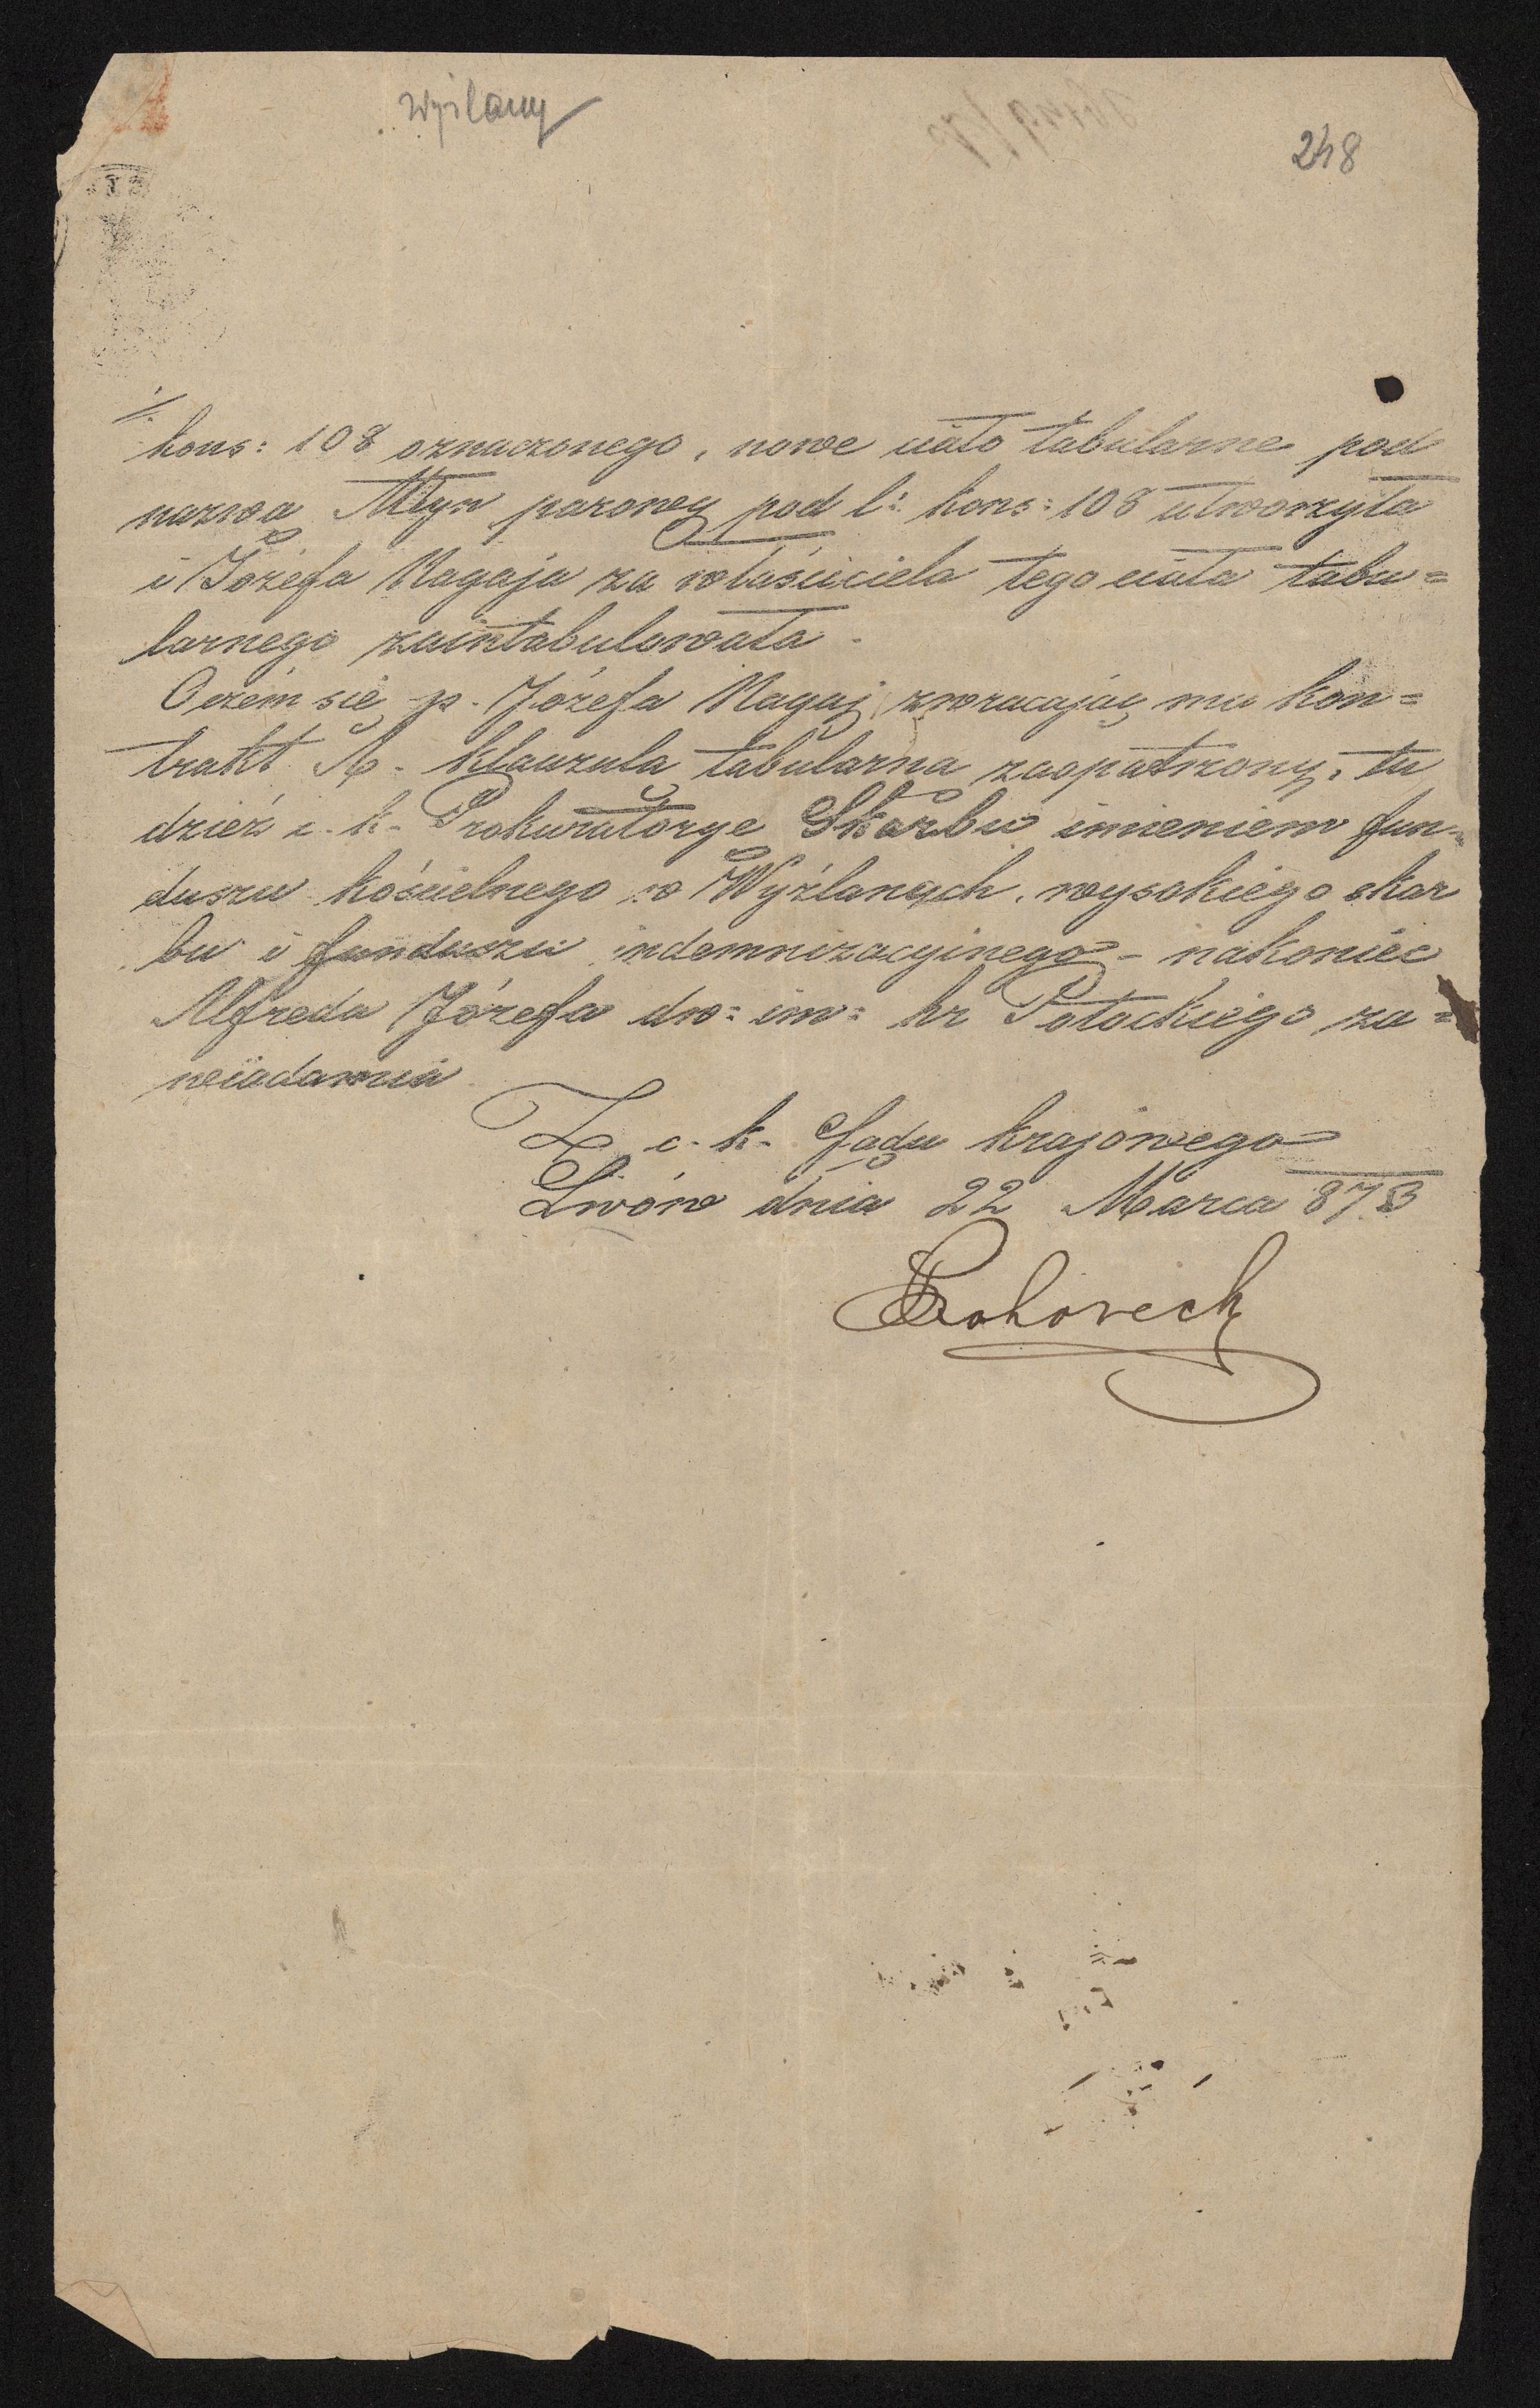 Wyżlany
248
kons: 108 oznaczonego, nowe ciało tabularne pod
nazwą Młyn parowy pod l: kons: 108 utworzyła
i Józefa Nagaja za właściciela tego ciała tabu=
larnego zaintabulowała.
O czem się p. Józefa Nagaj, zwracając mu kon=
trakt A. klauzulą tabularną zaopatrzony, tu
dzież c. k. Prokuratoryę Skarbu imieniem fun=
duszu kościelnego w Wyżlanych, wysokiego skar
bu i funduszu indemnizacyjnego – nakoniec
Alfreda Józefa dw: im: hr Potockiego za=
wiadamia
Z c. k. Sądu krajowego
Lwów dnia 22 Marca 873